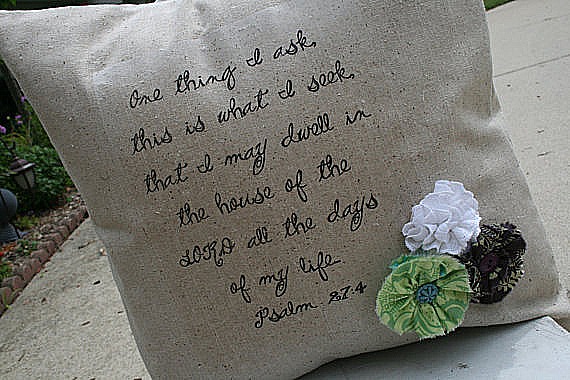 One thing I ask,
this is what I seek,
that I may dwell in
the house of the
LORD all the days
of my life
Psalm 27:4